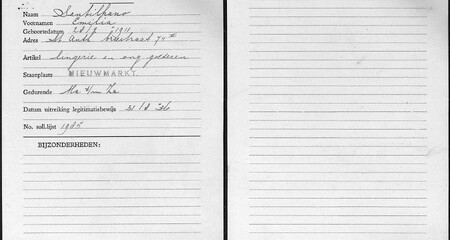 Naam Santilhano
Voornamen Emilia
Geboortedatum 1911
Adres St. Anth. breestraat 74
Artikel lingerie en ong. goederen
Staanplaats NIEUWMARKT.
Gedurende Ma t/m Za
Datum uitreiking legitimatiebewijs 21/8 '36
No. soll.lijst
BIJZONDERHEDEN: